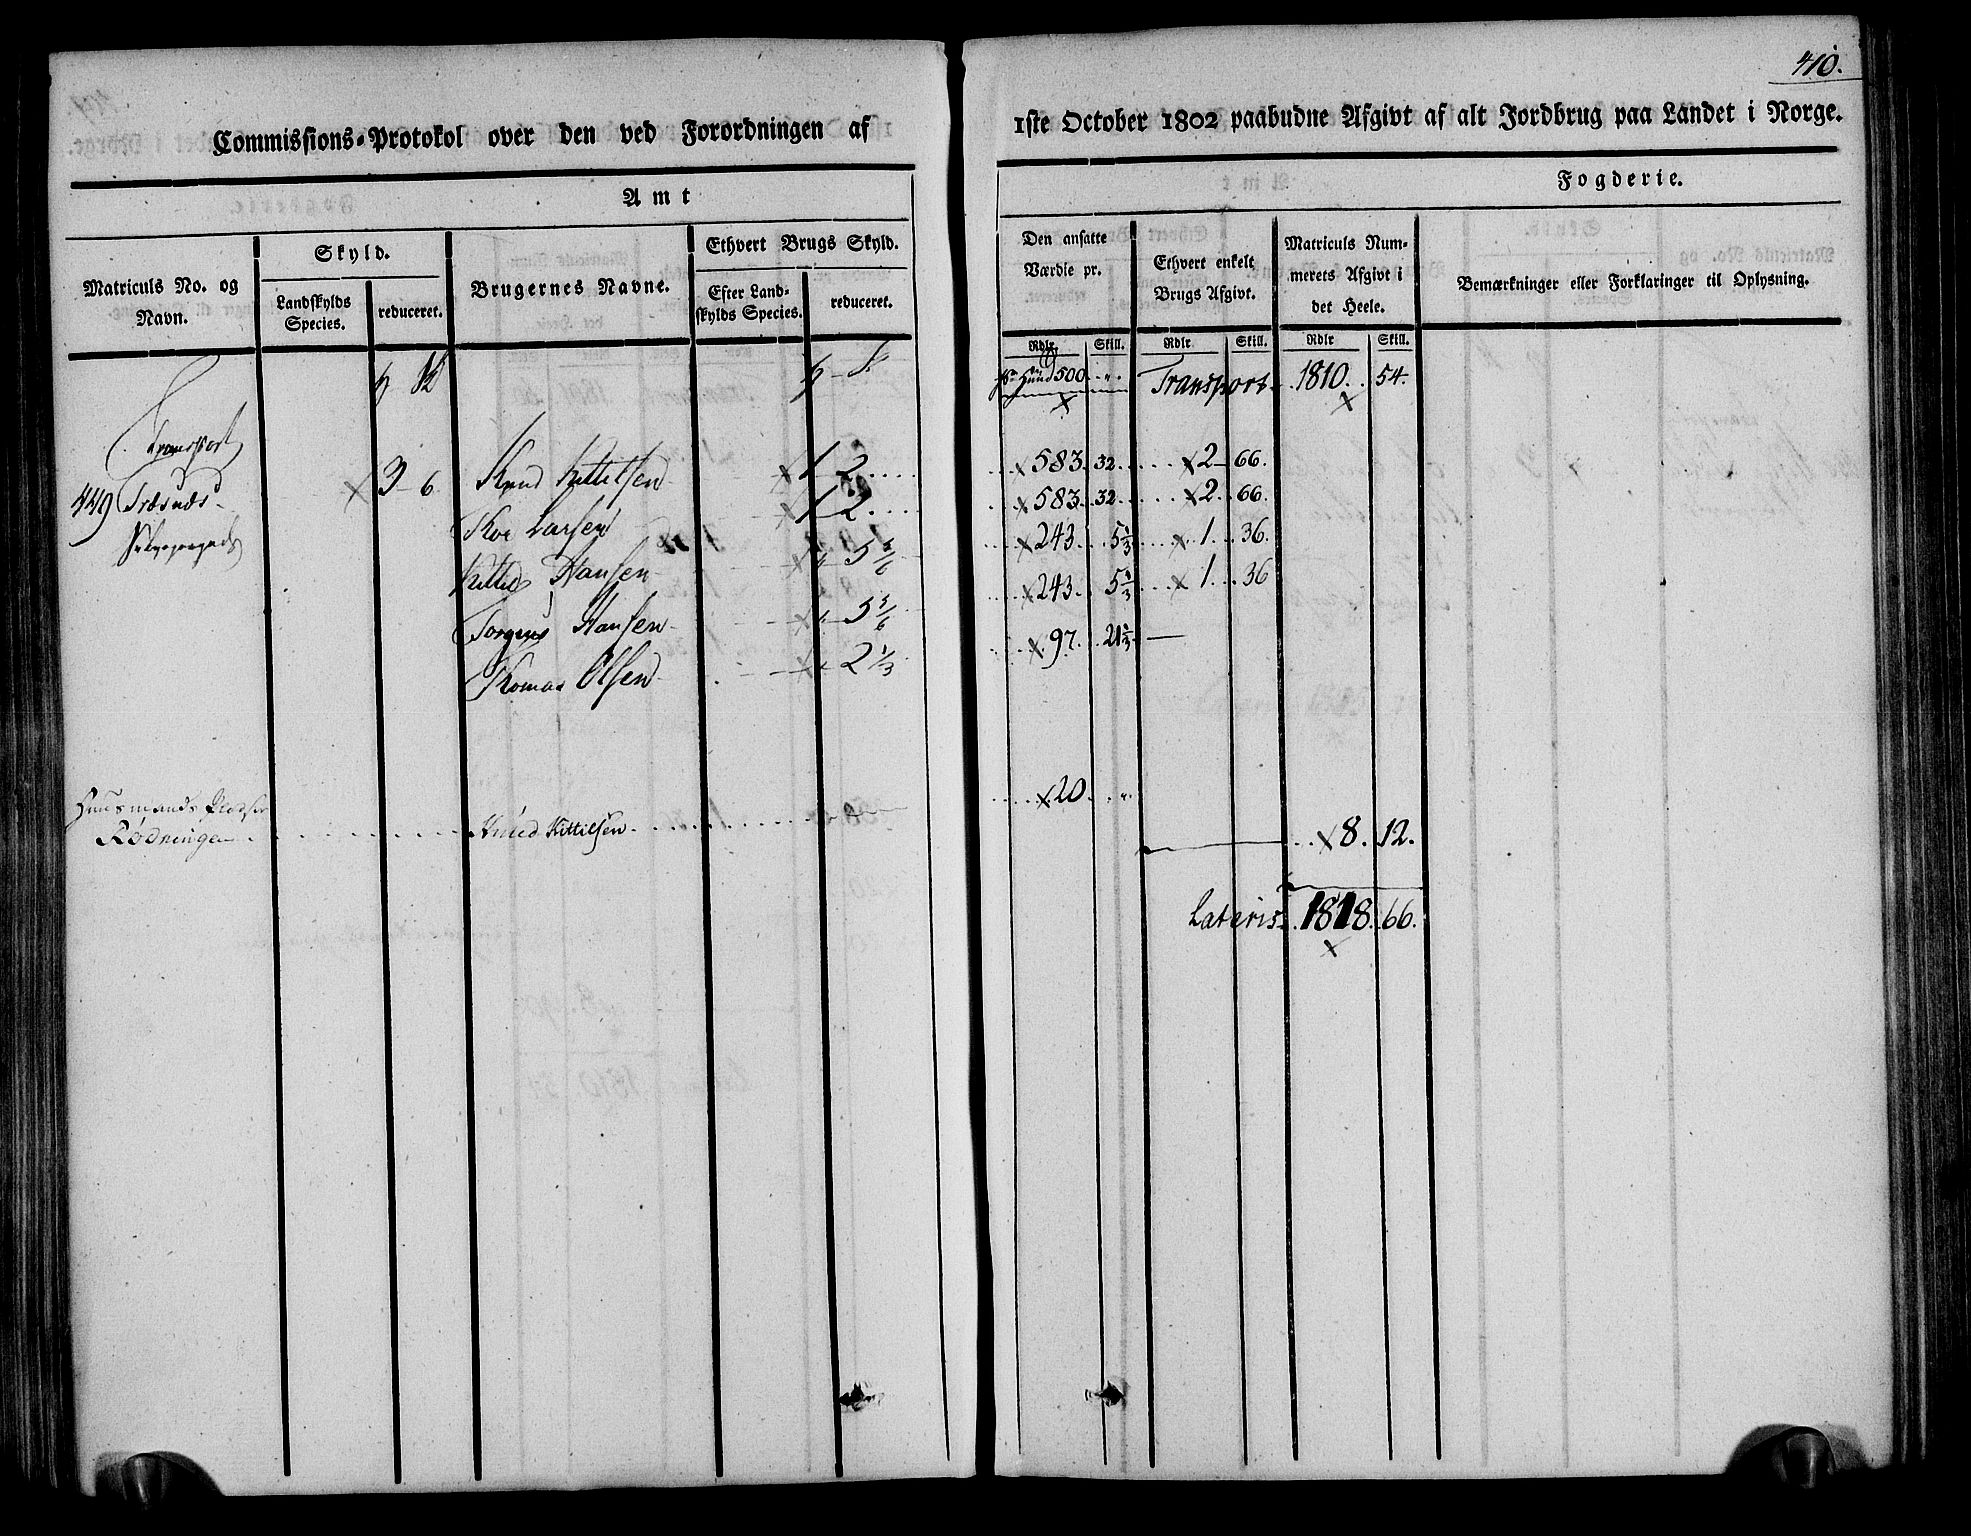 410.
Commissions-Protokol over den ved Forordningen af 1ste October 1802 paabudne Afgivt af alt Jordbrug paa Landet i Norge.
Amt Fogderie.
Matriculs No. og Navn.
Skyld.
Landskylds Species.
reduceret.
Brugernes Navne.
Ethvert Brugs Skyld.
Efter Landskylds Species.
reduceret.
Den ansatte Værdie pr.
Ethvert enkelt Brugs Afgivt.
Matriculs Nummerets Afgivt i det Heele.
Bemærkninger eller Forklaringer til Oplysning.
Rdlr. Skill. Rdlr Skill. Rdlr Skill.
Transport
Hud 500 " Transport 1810. 54.
449 3 6 Knud Kittilsen 1 2 583. 32 2 66.
Larsen 1 2 583. 32 2 66.
Kittel Hansen " 5 5/6 243 5 1/3 1. 36.
Jorgens Hansen " 5 5/6 243. 5 1/3 1. 36
Thomas Olsen " 2 1/3 97. 21 1/3 —
Huusmands Pladser
Rödningen Knud Kittilsen 20. "
8. 12.
Lateris 1818. 66.